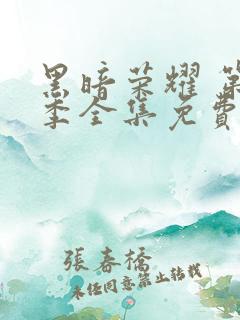 黑暗荣耀 第
季全集免费
張春橋
未经同意禁止转载